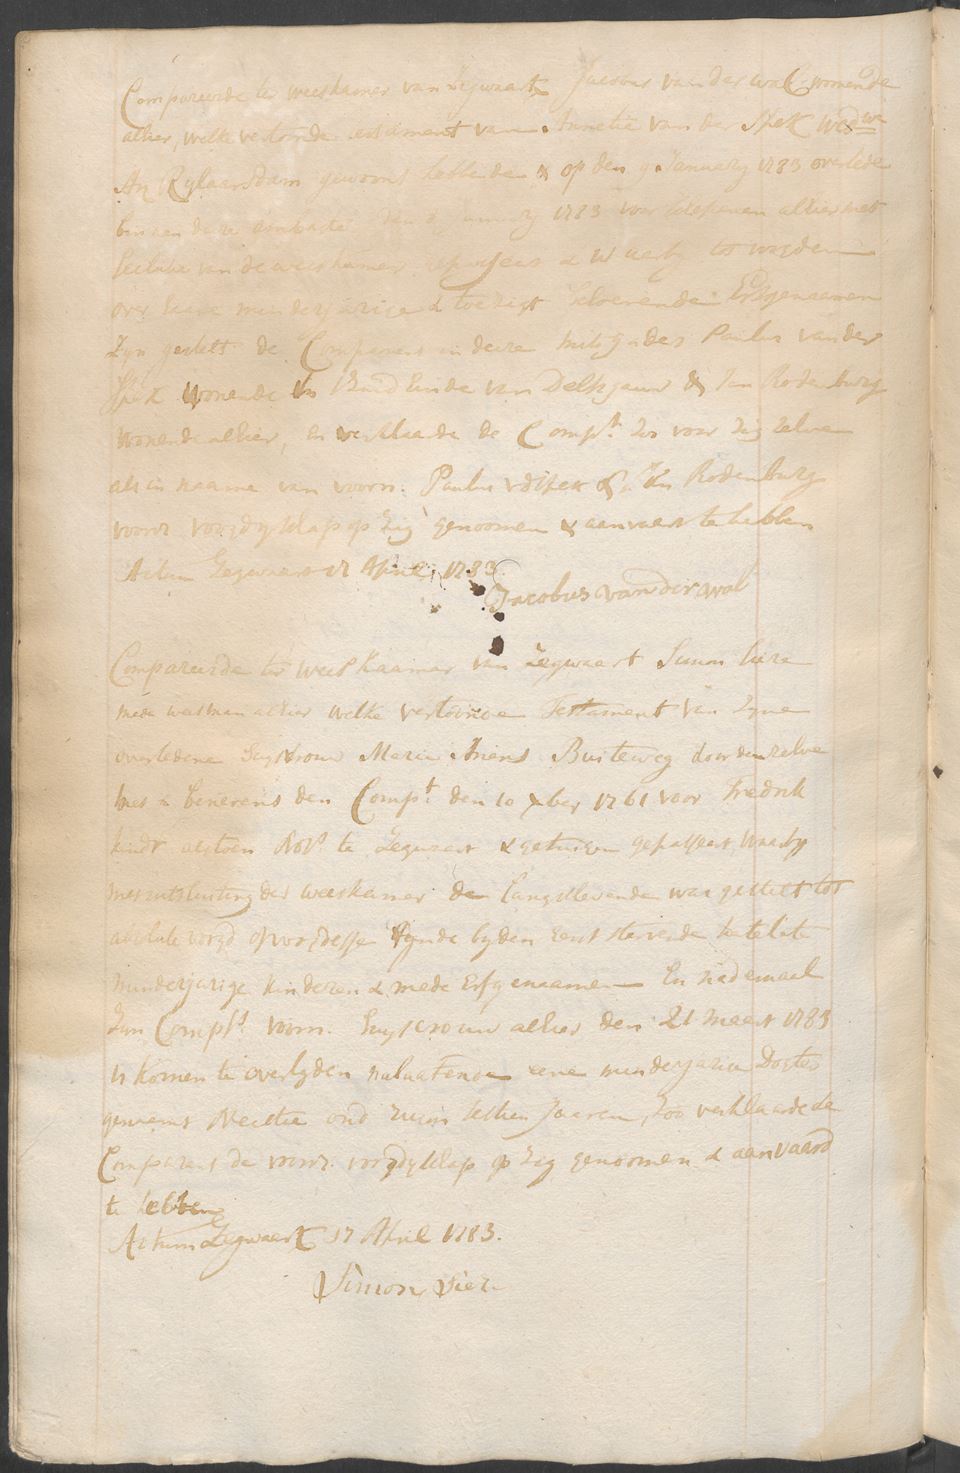 Compareerde ter weeskamer van Zegwaart Jacobus van der wal wonende
alhier, welke vertoonde testament van Annetie van der Spek wedwe
Ary Rylaarsdam gewoont hebbende & op den 9 January 1783 overlede
binnen deze ambagte den January 1783 voor Schepenen alhier met
seclusie van de weeskamer gepasseert & waarby tot vogden
over hare minderjarige & toezigt behoevende Erfgenaamen
Zyn gestelt de Comparant in deze mitsgades Paulus van der
Spek wonende in Buid Einde van Delfgauw & Jan Rodenburg
wonende alhier, en verklaarde de Compt. zo voor zig zelve
als in naame van voorn: Paulus vd Spek & Jan Rodenburg
voorz voogdyschap op zig genoomen & aanvaart te hebben
Actum Zegwaart 17 April 1783.
Jacobus van der wal
Compareerde ter Weeskaamer van Zegwaart Simon Siere
mede weesman alhier welke vertoonde Testament van Zyne
overledene Huysvrouw Maria Ariens Buiteweg door dezelve
met & benevens den Compt. den 10 Xber 1761 voor Fredrik
kindt alstoen Nots te Zegwaart & getuigen gepasseert, waarby
met uitsluiting der weeskamer de Langstlevende was gestelt tot
absolute voogd op voogdesse over de by den eerst stervende natelate
minderjarige kinderen & mede Erfgenaamen En nademaal
Zyn Compts. voorn. Huysvrouw alhier den 21 Maert 1783
is komen te overlyden nalaatende eene minderjarige Dogter
genaemt Neeltie oud ruim sestien Jaaren, Zoo verklaarde de
Comparant de voorz. voogdyschap op Zig genoomen & aanvaard
te hebben
Actum Zegwaart 17 April 1783.
Simon Siere